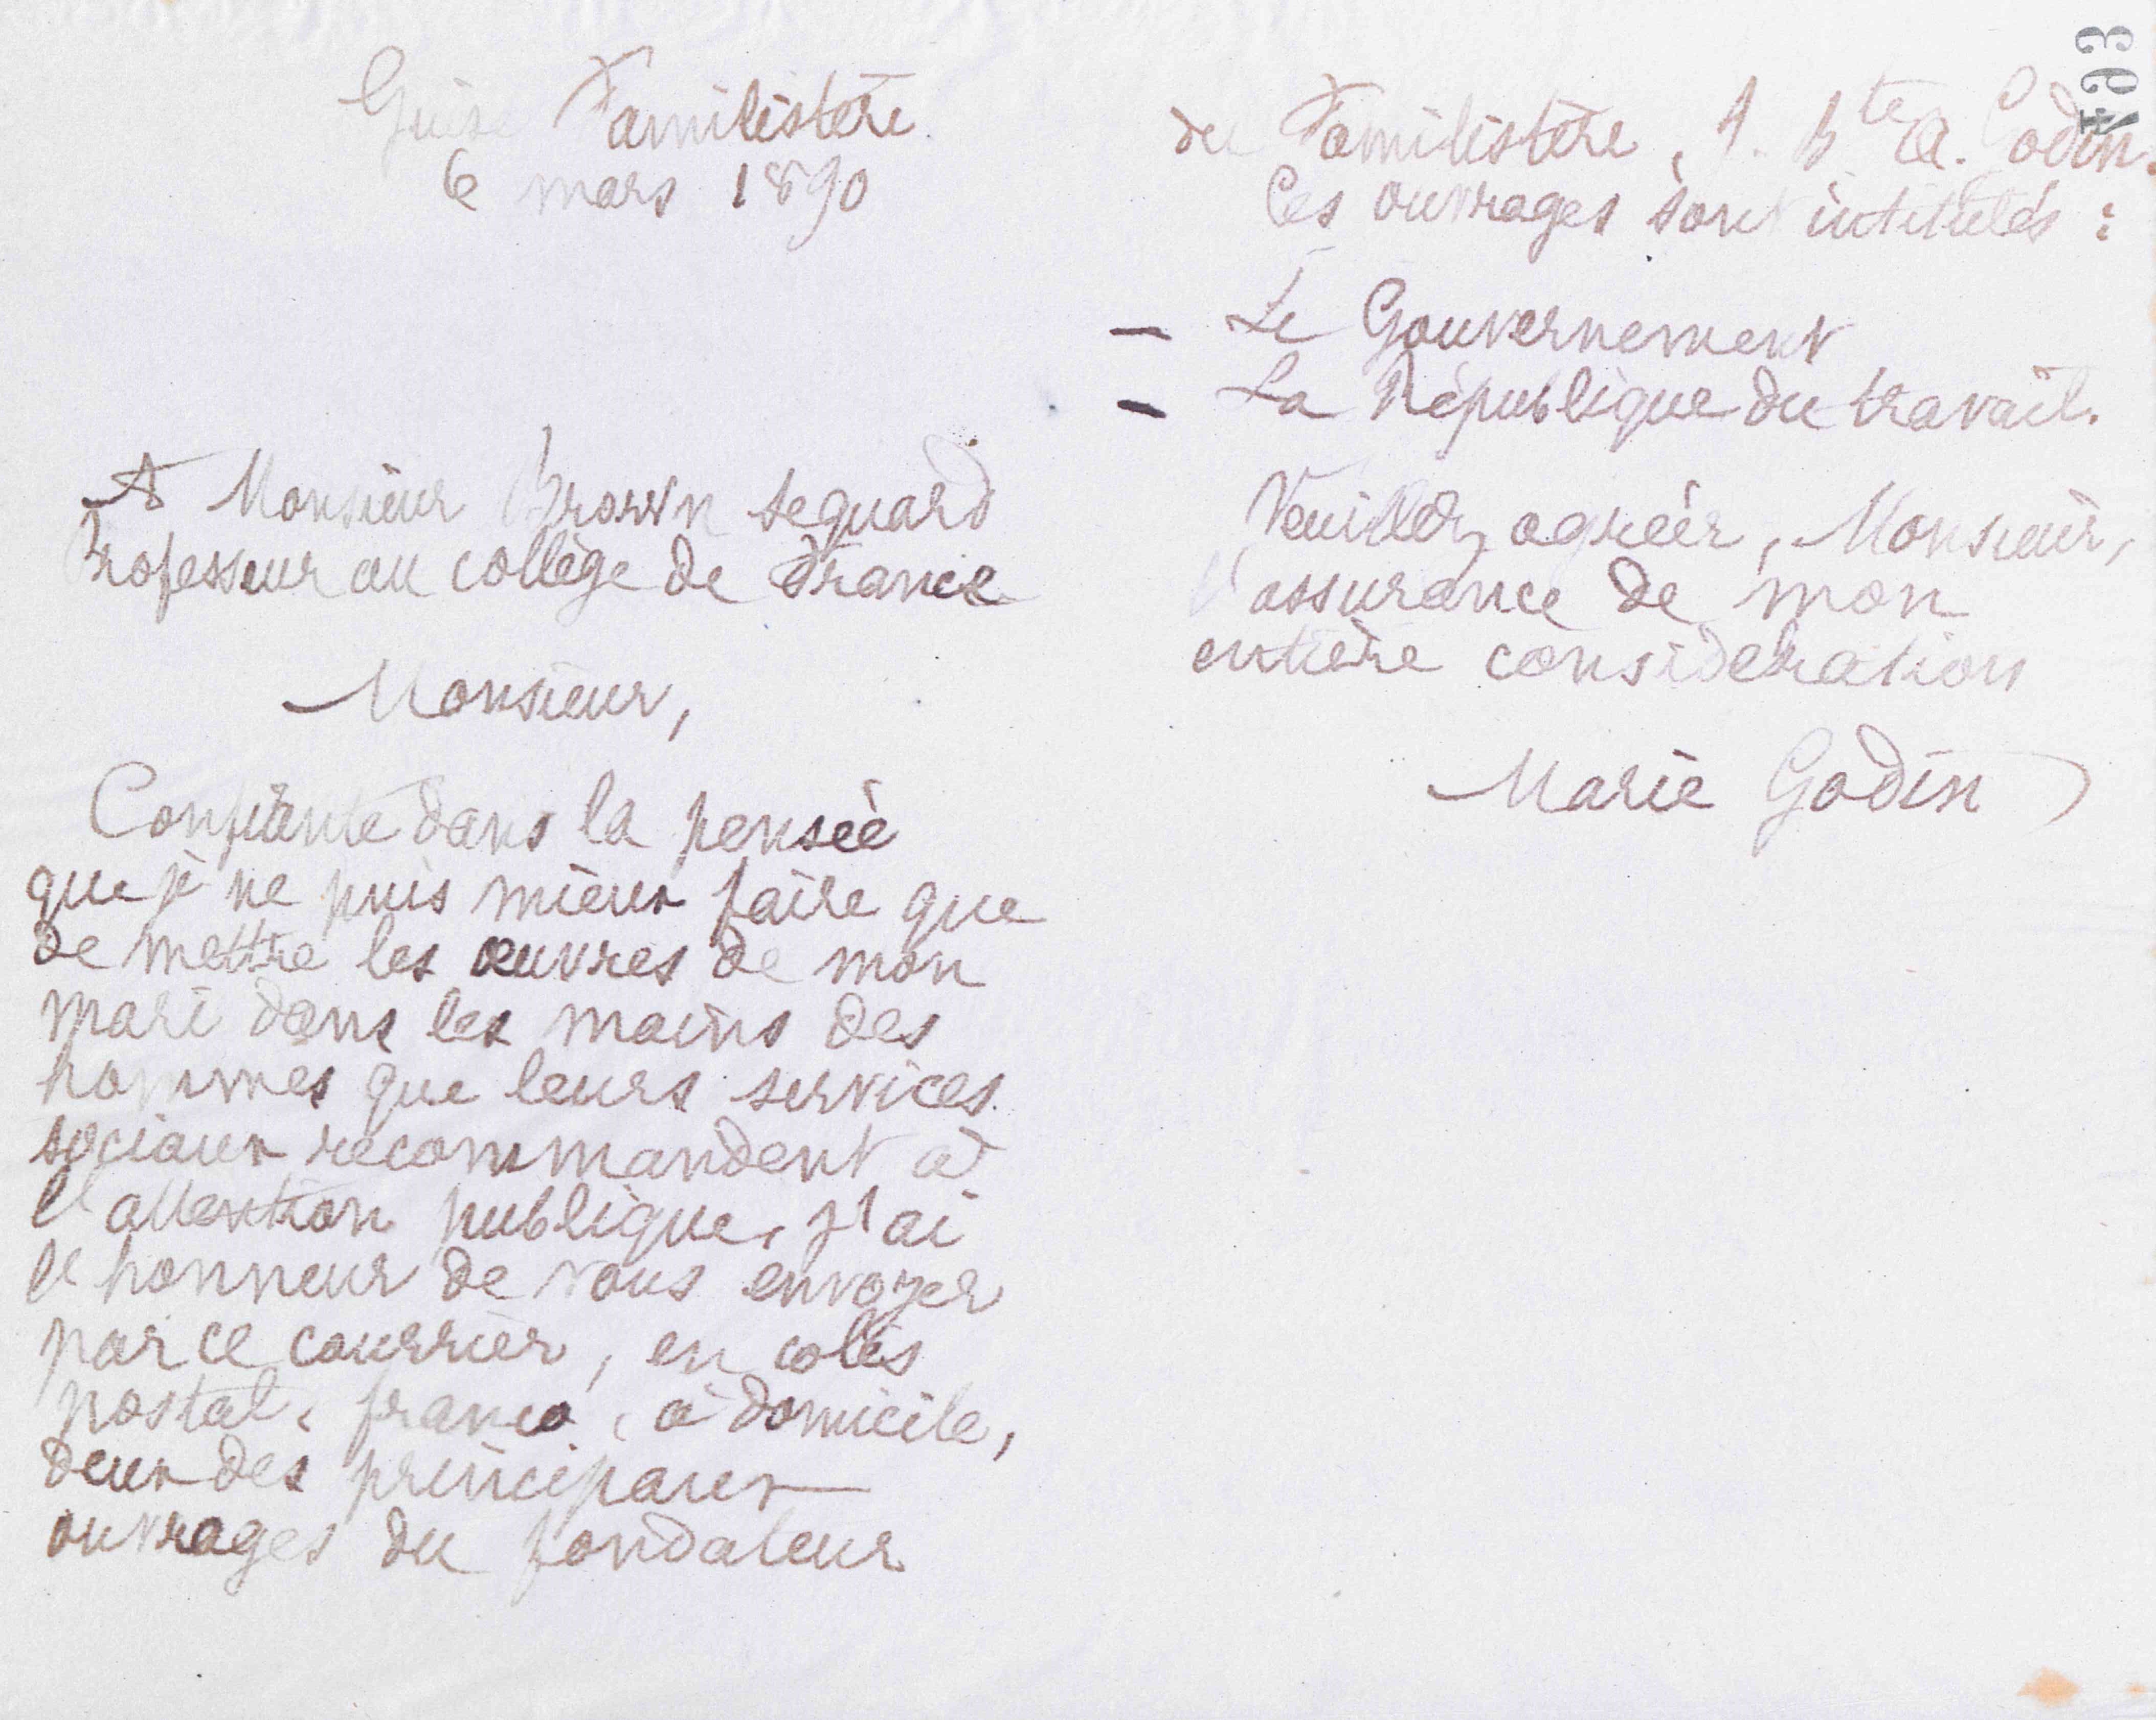 Guise Familistère
6 mars 1890
A Monsieur Brown sequard
Professeur au collège de France
Monsieur,
Confiante dans la pensée
que je ne puis mieux faire que
de mettre les œuvres de mon
mari dans les mains des
hommes que leurs services
sociaux recommandent à
l'attention publique, j'ai
l'honneur de vous envoyer
par ce courrier, en colis
postal, franco, à domicile,
deux des principaux
ouvrages du fondateur
493
du Familistère, J. Bte A. Godin.
Ces ouvrages sont intitulés :
— Le Gouvernement
— La République du travail.
Veuillez agréer, Monsieur,
l'assurance de mon
entière considération
Marie Godin